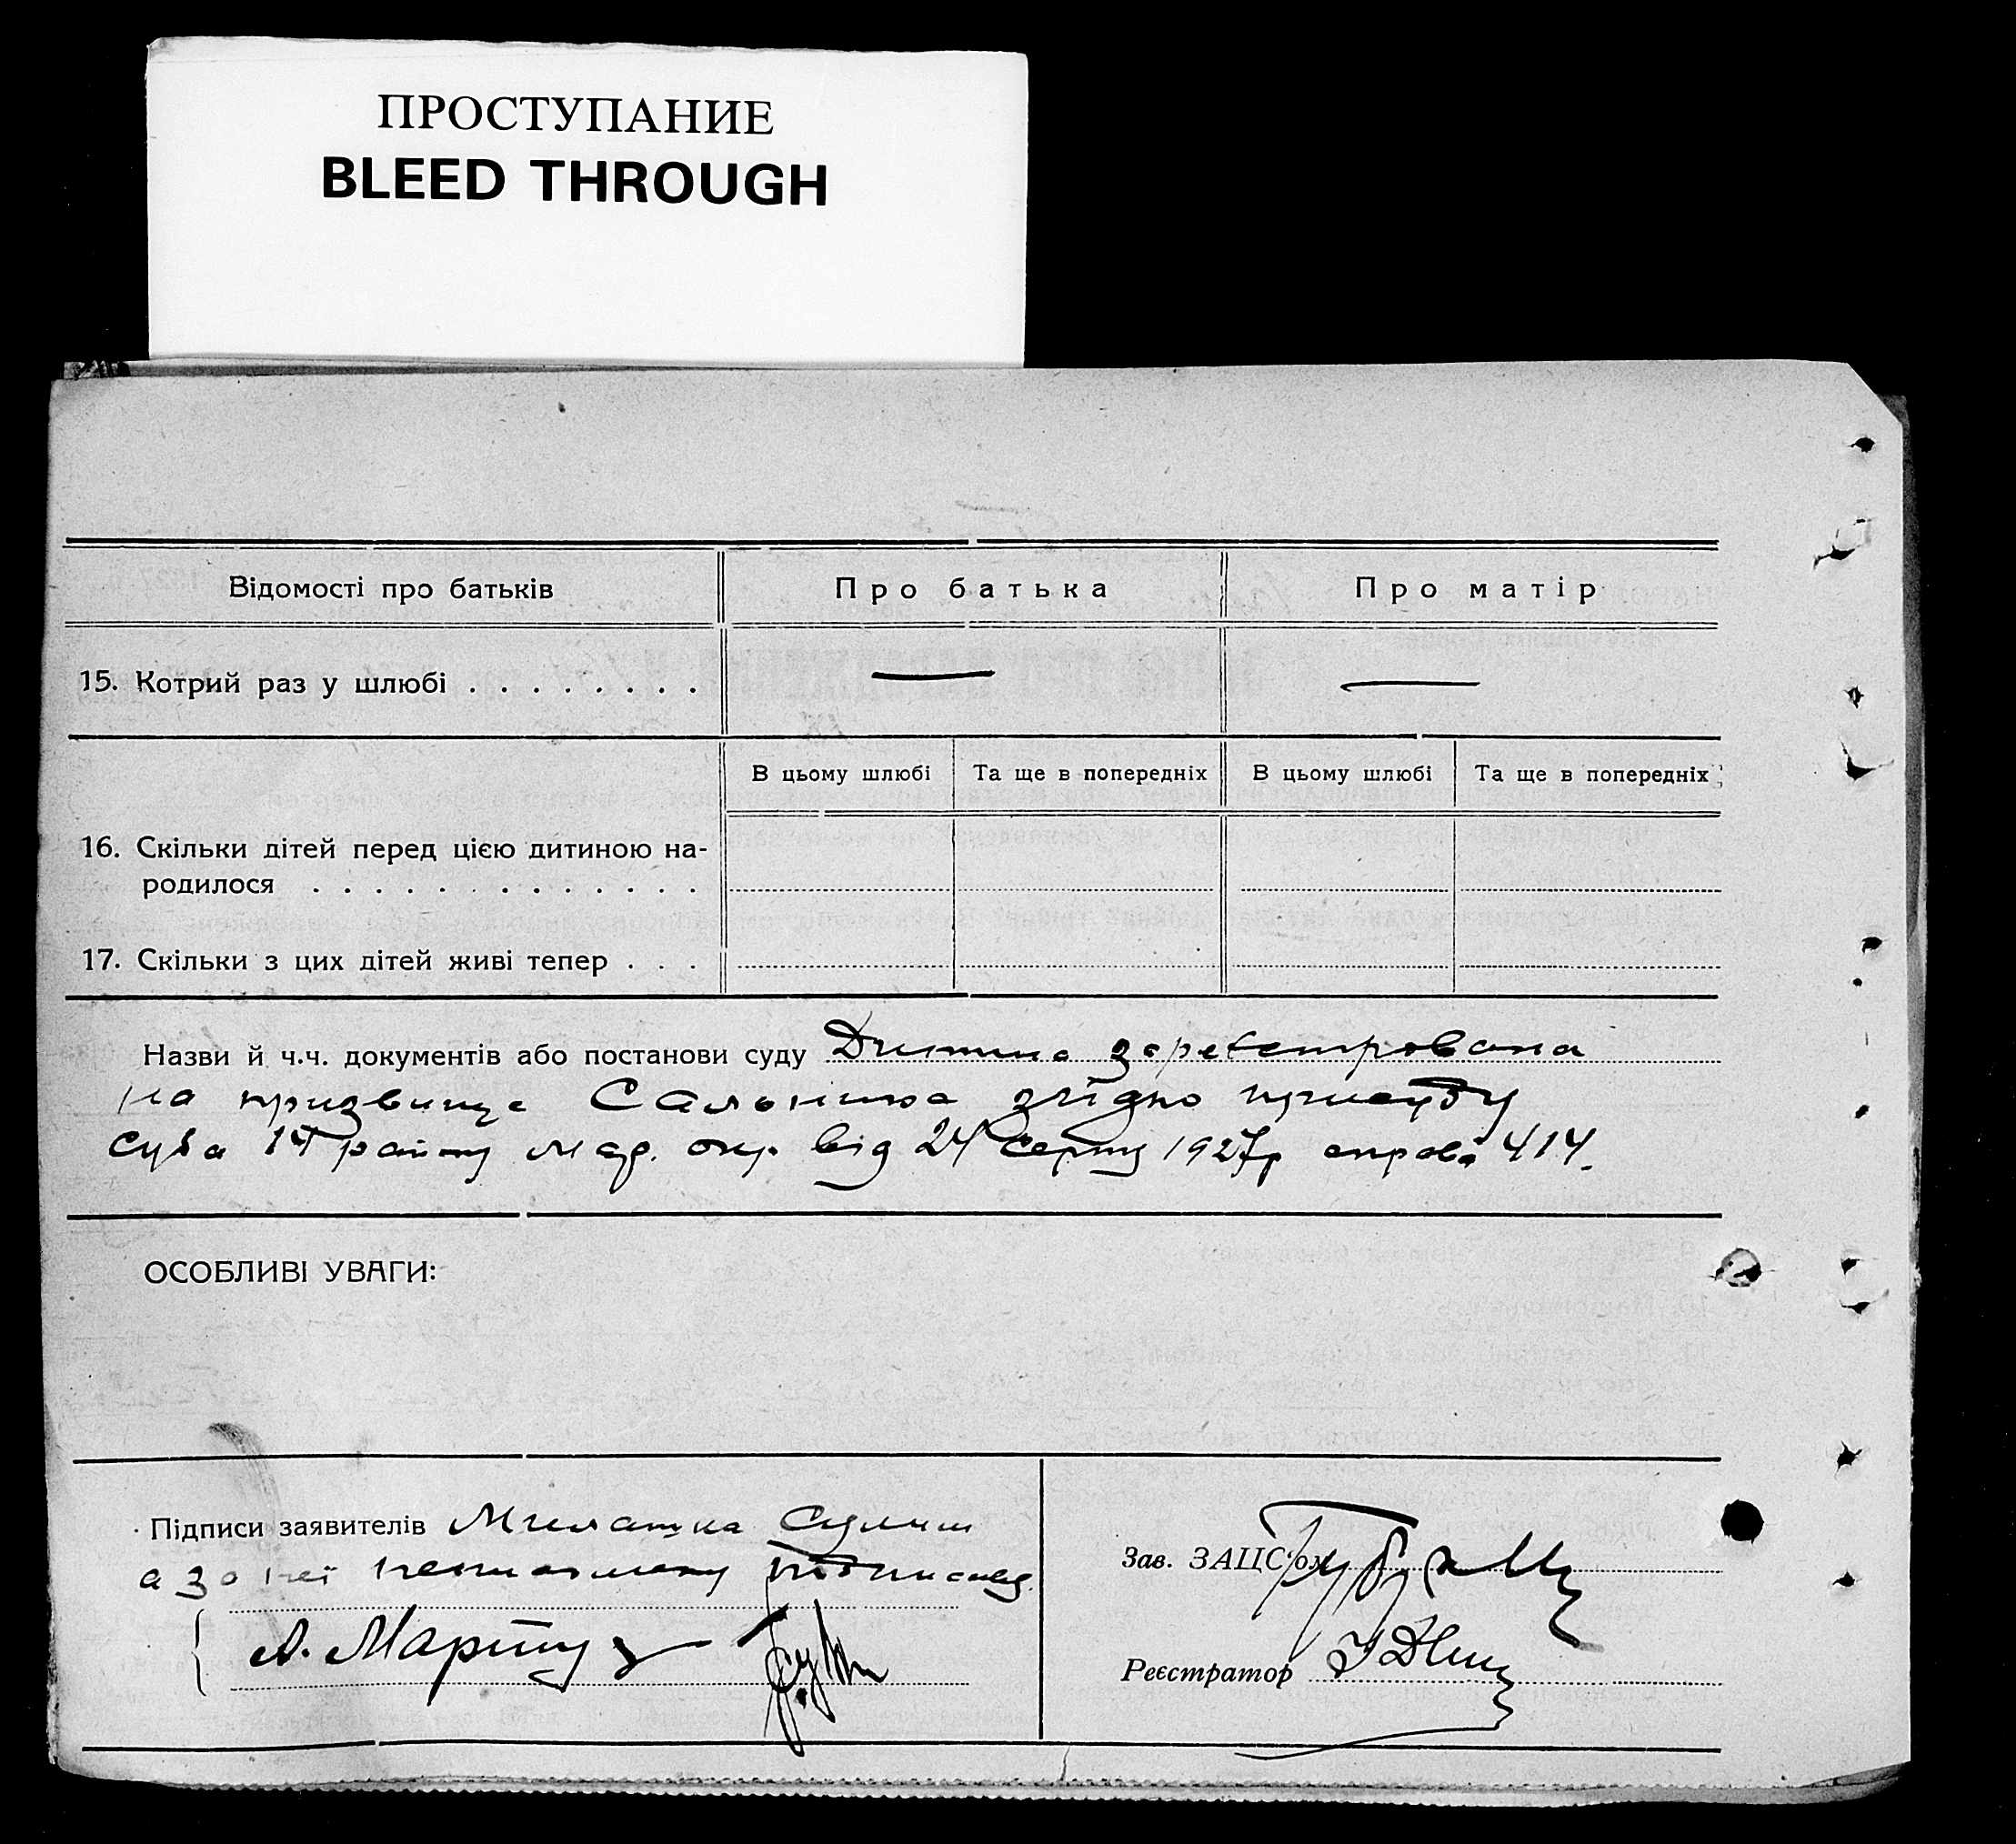 ПРОСТУПАНИЕ
BLEED THROUGH
Відомості про батьків
Про батька
Про матір
15. Котрий раз у шлюбі . . . . . . . .
— —
В цьому шлюбі
Та ще в попередніх
В цьому шлюбі
Та ще в попередніх
16. Скільки дітей перед цією дитиною на-
родилося . . . . . . . . . . . . .
17. Скільки з цих дітей живі тепер . . .
Назви й ч.ч. документів або постанови суду Дитина зареєстрована
на призвище згідно присуду
суда 14 району окр. від 24 серпня 1927р справа 414.
ОСОБЛИВІ УВАГИ:
Підписи заявителів
а за неї неписьменну
А.
Зав. ЗАЦС'ом
Реєстратор